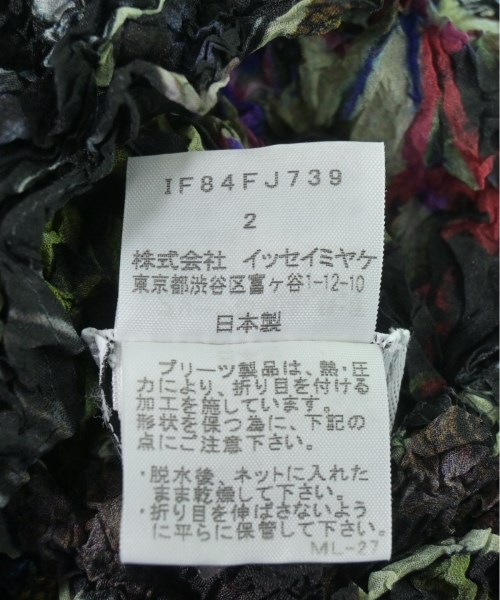 IF84FJ739
2
株式会社 イッセイミヤケ
東京都渋谷区富ヶ谷1-12-10
日本製
プリーツ製品は、熱・圧
力により、折り目を付ける
加工を施しています。
形状を保つ為に、下記の
点にご注意下さい。
・脱水後、ネットに入れた
まま乾燥して下さい。
・折り目を伸ばさないよう
に平らに保管して下さい。
ML-27